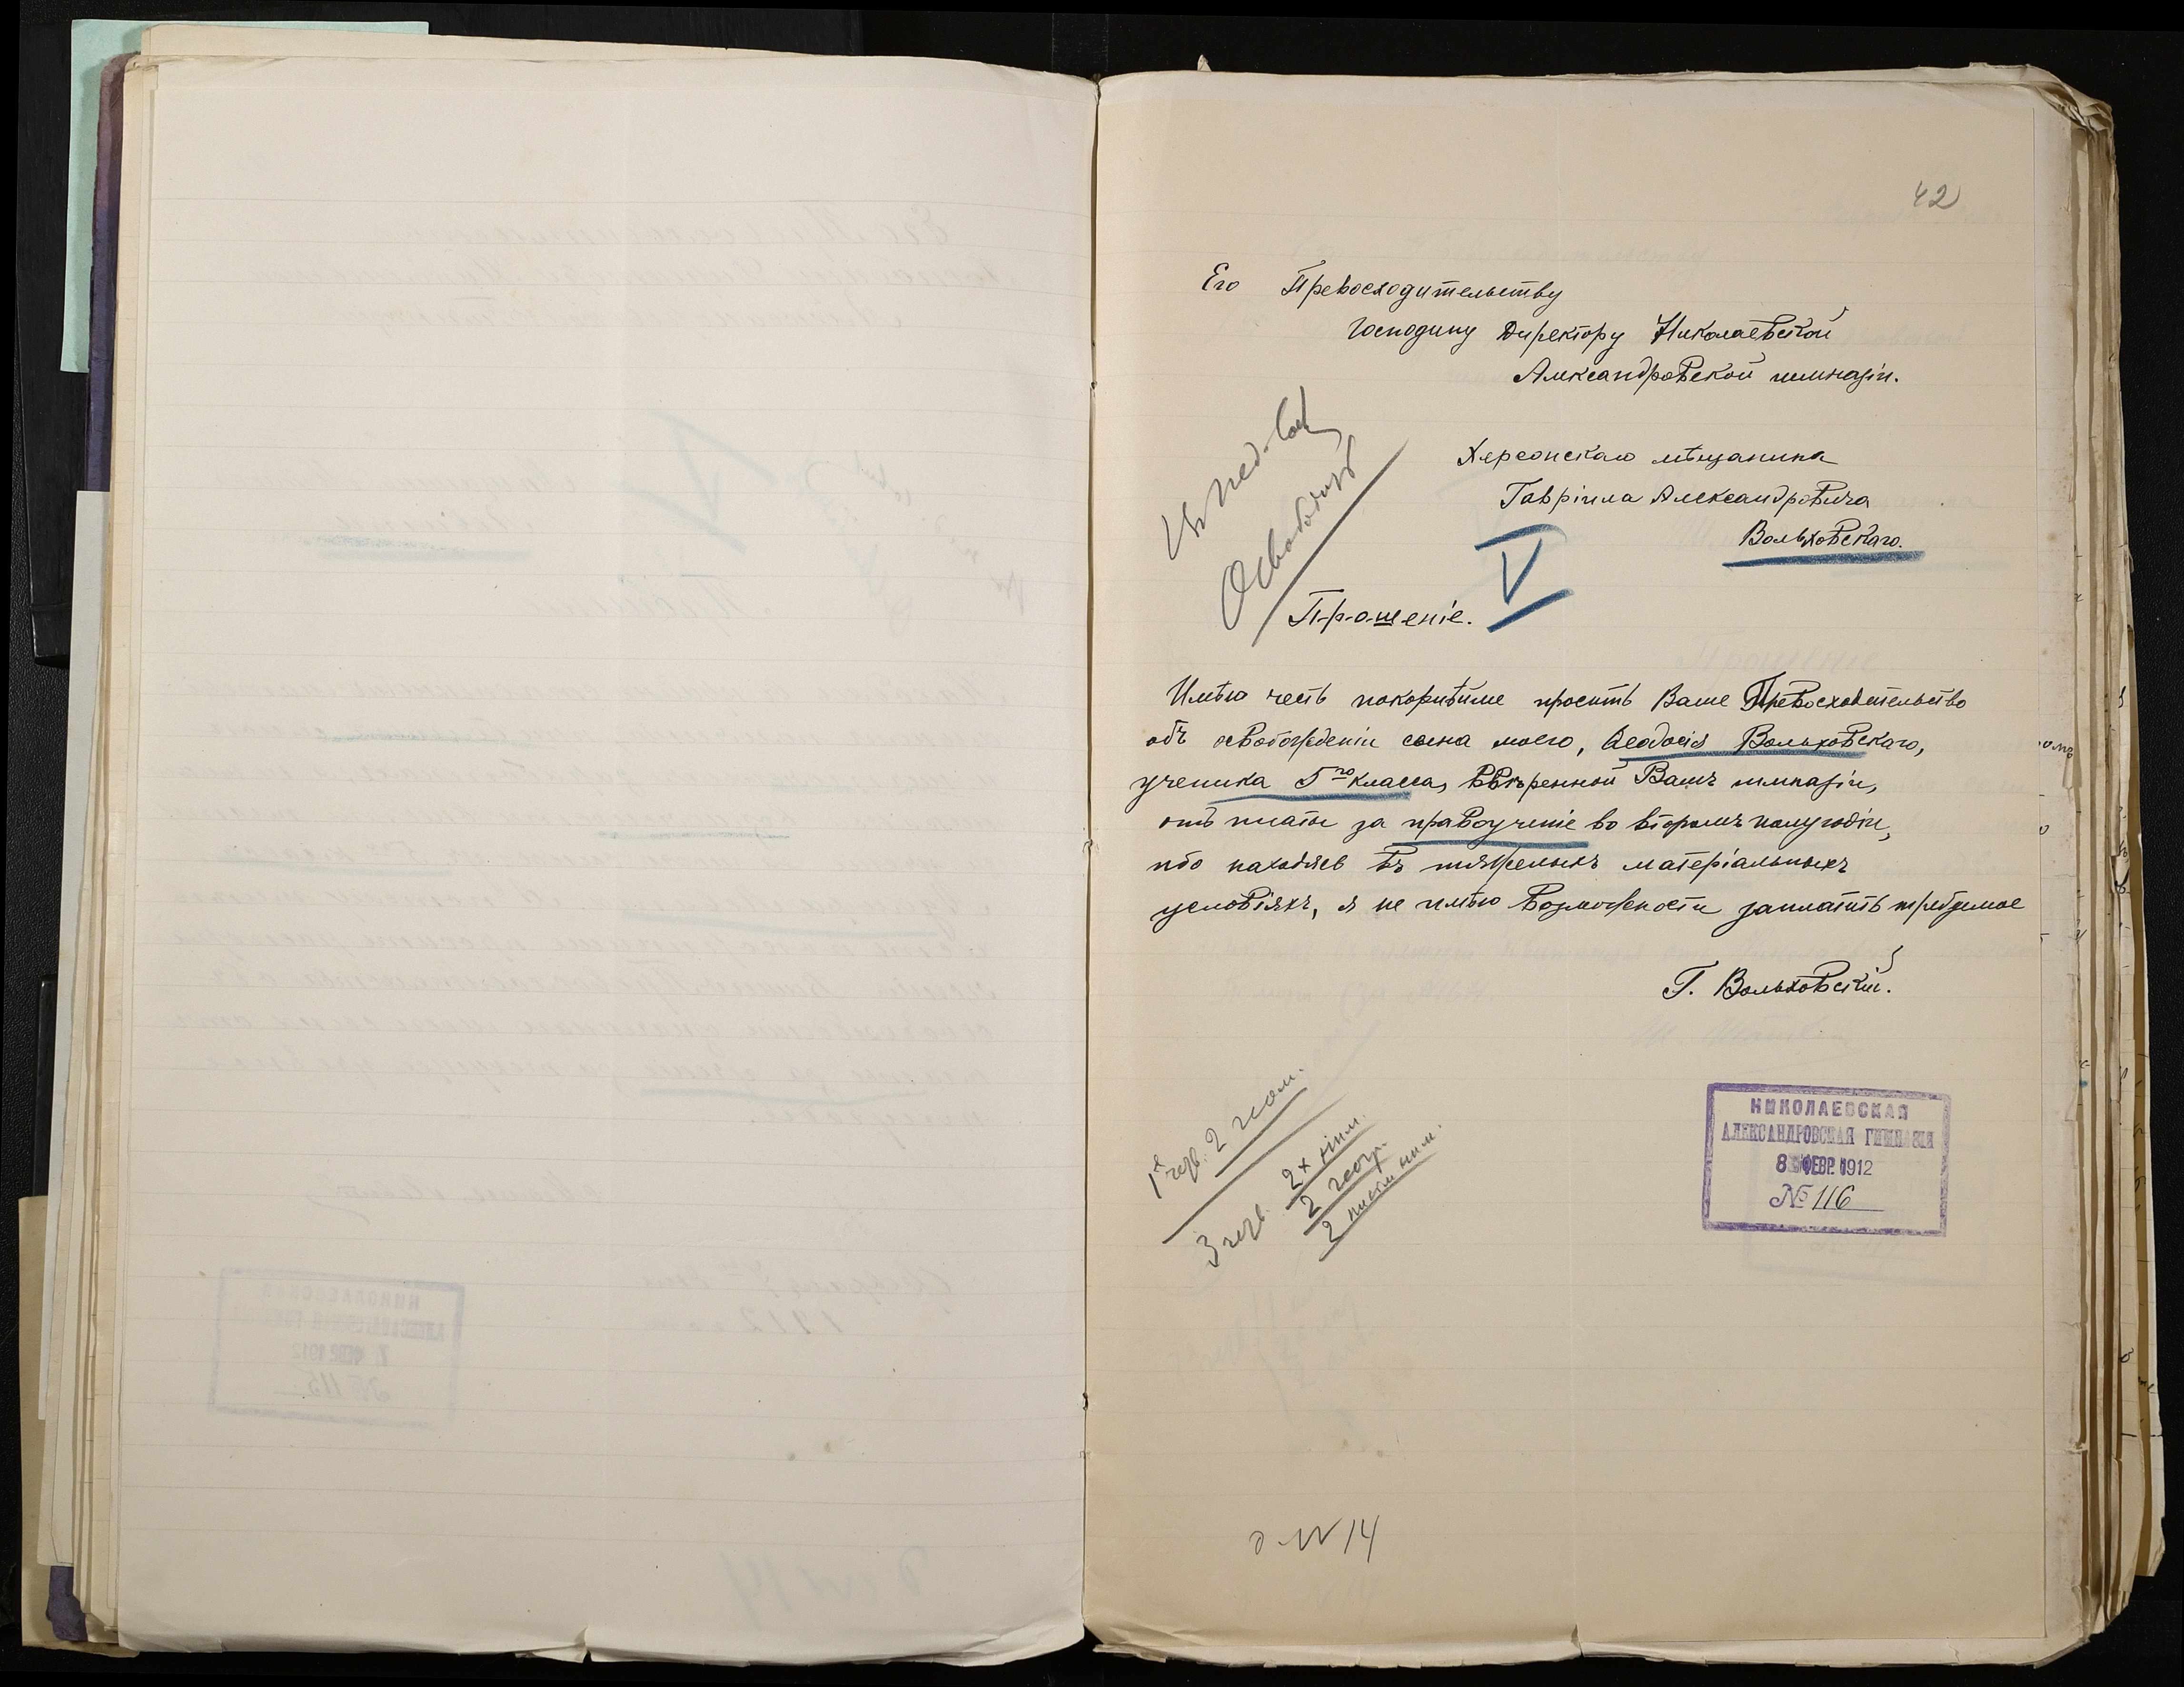 42
Его Превосходительству
Господину Директору Николаевской
Александровской гимназіи.
Херсонскаго мѣщанина
Гавріила Александровича
Вольховскаго.
Освободить
V
Прошеніе.
Имѣю честь покорнѣйше просить Ваше Превосходительство
объ освобожденіи сына моего, Ѳеодосія Вольховскаго,
ученика 5го класса, ввѣренной Вамъ гимназіи,
отъ платы за правоученіе во второмъ полугодіи,
ибо находясь въ тяжелыхъ матеріальныхъ
условіяхъ, я не имѣю возможности заплатить требуемое
Г. Вольховскій.
1я четв. 2 геом.
3 четв. 2 х нѣм.
2 геогр.
2 письм. нѣм.
НИКОЛАЕВСКАЯ
АЛЕКСАНДРОВСКАЯ ГИМНАЗІЯ
8 ФЕВР. 1912
№ 116
д № 14